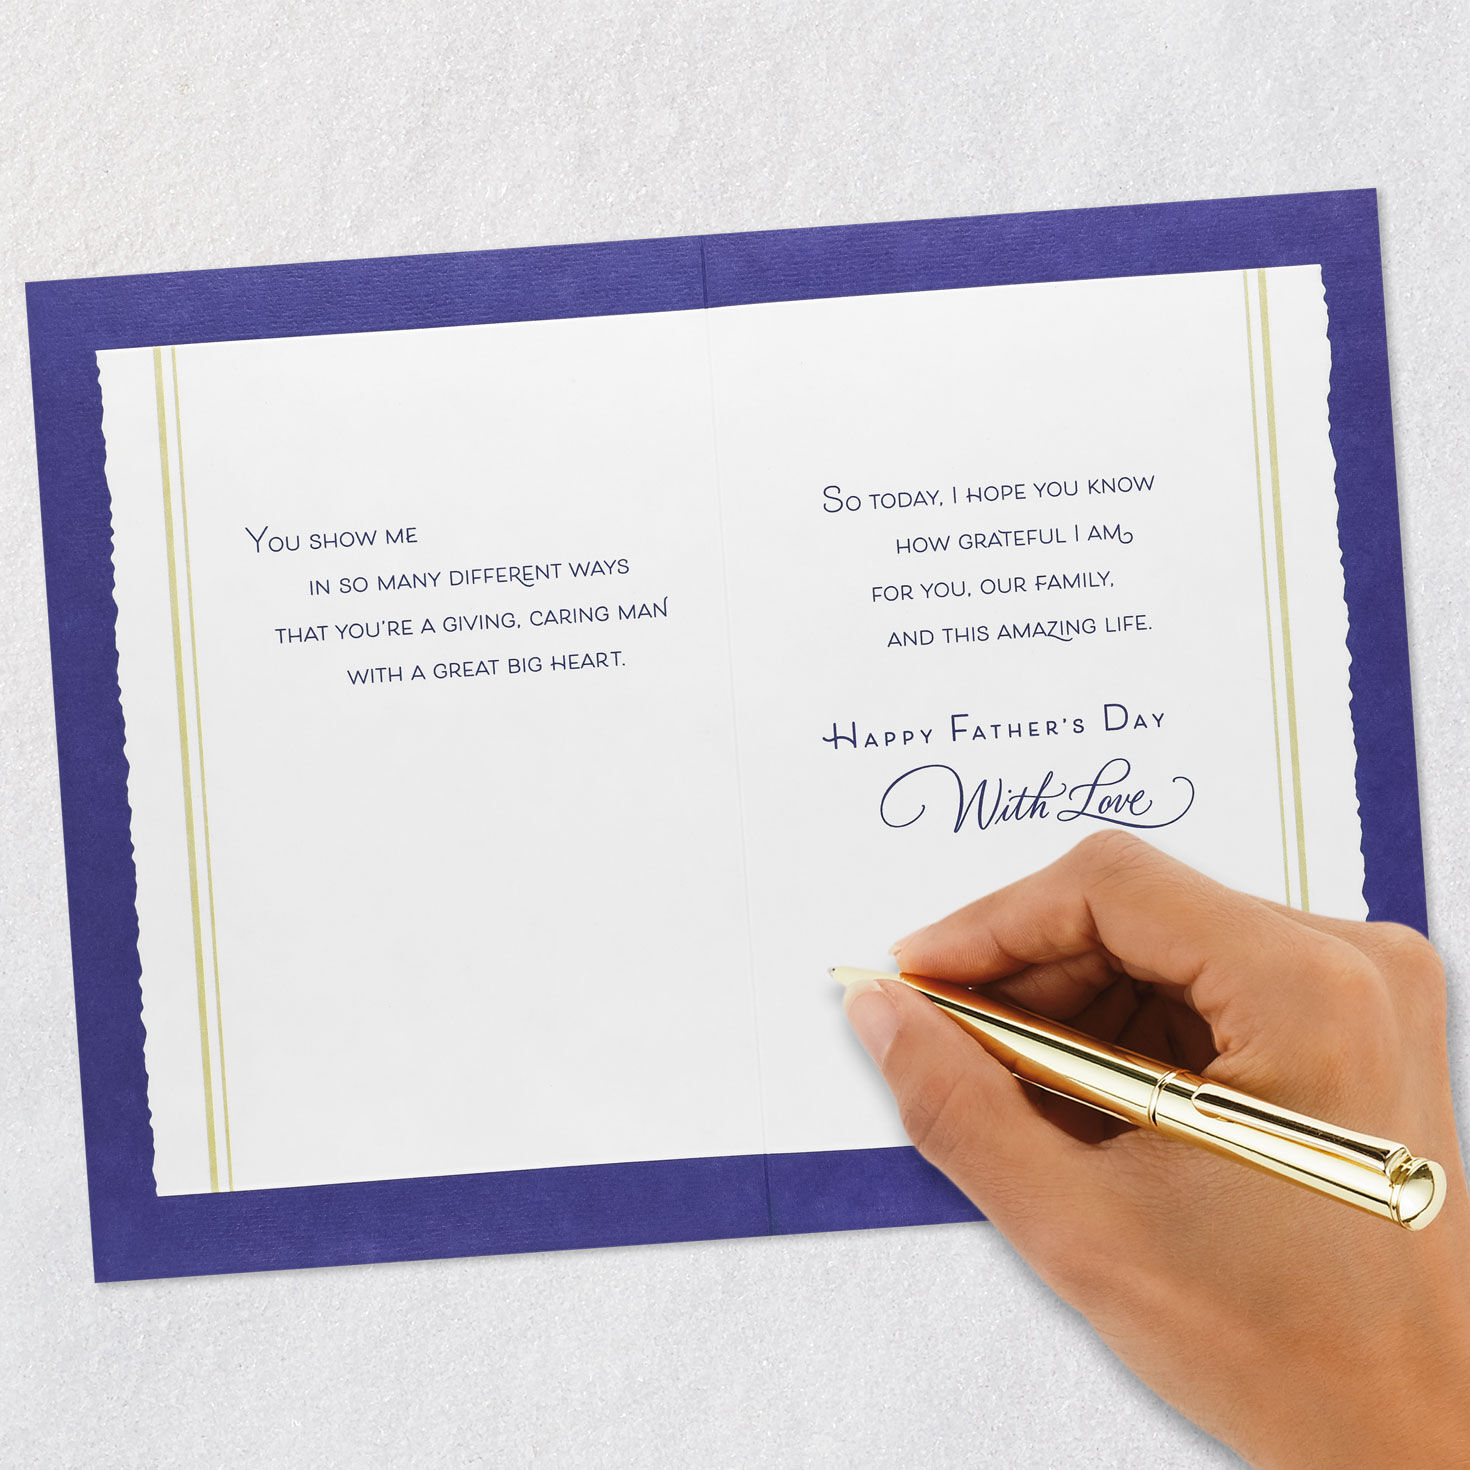 You show me
in so many different ways
that you're a giving, caring man
with a great big heart.
So today, I hope you know
how grateful I am
for you, our family,
and this amazing life.
Happy Father's Day
With Love